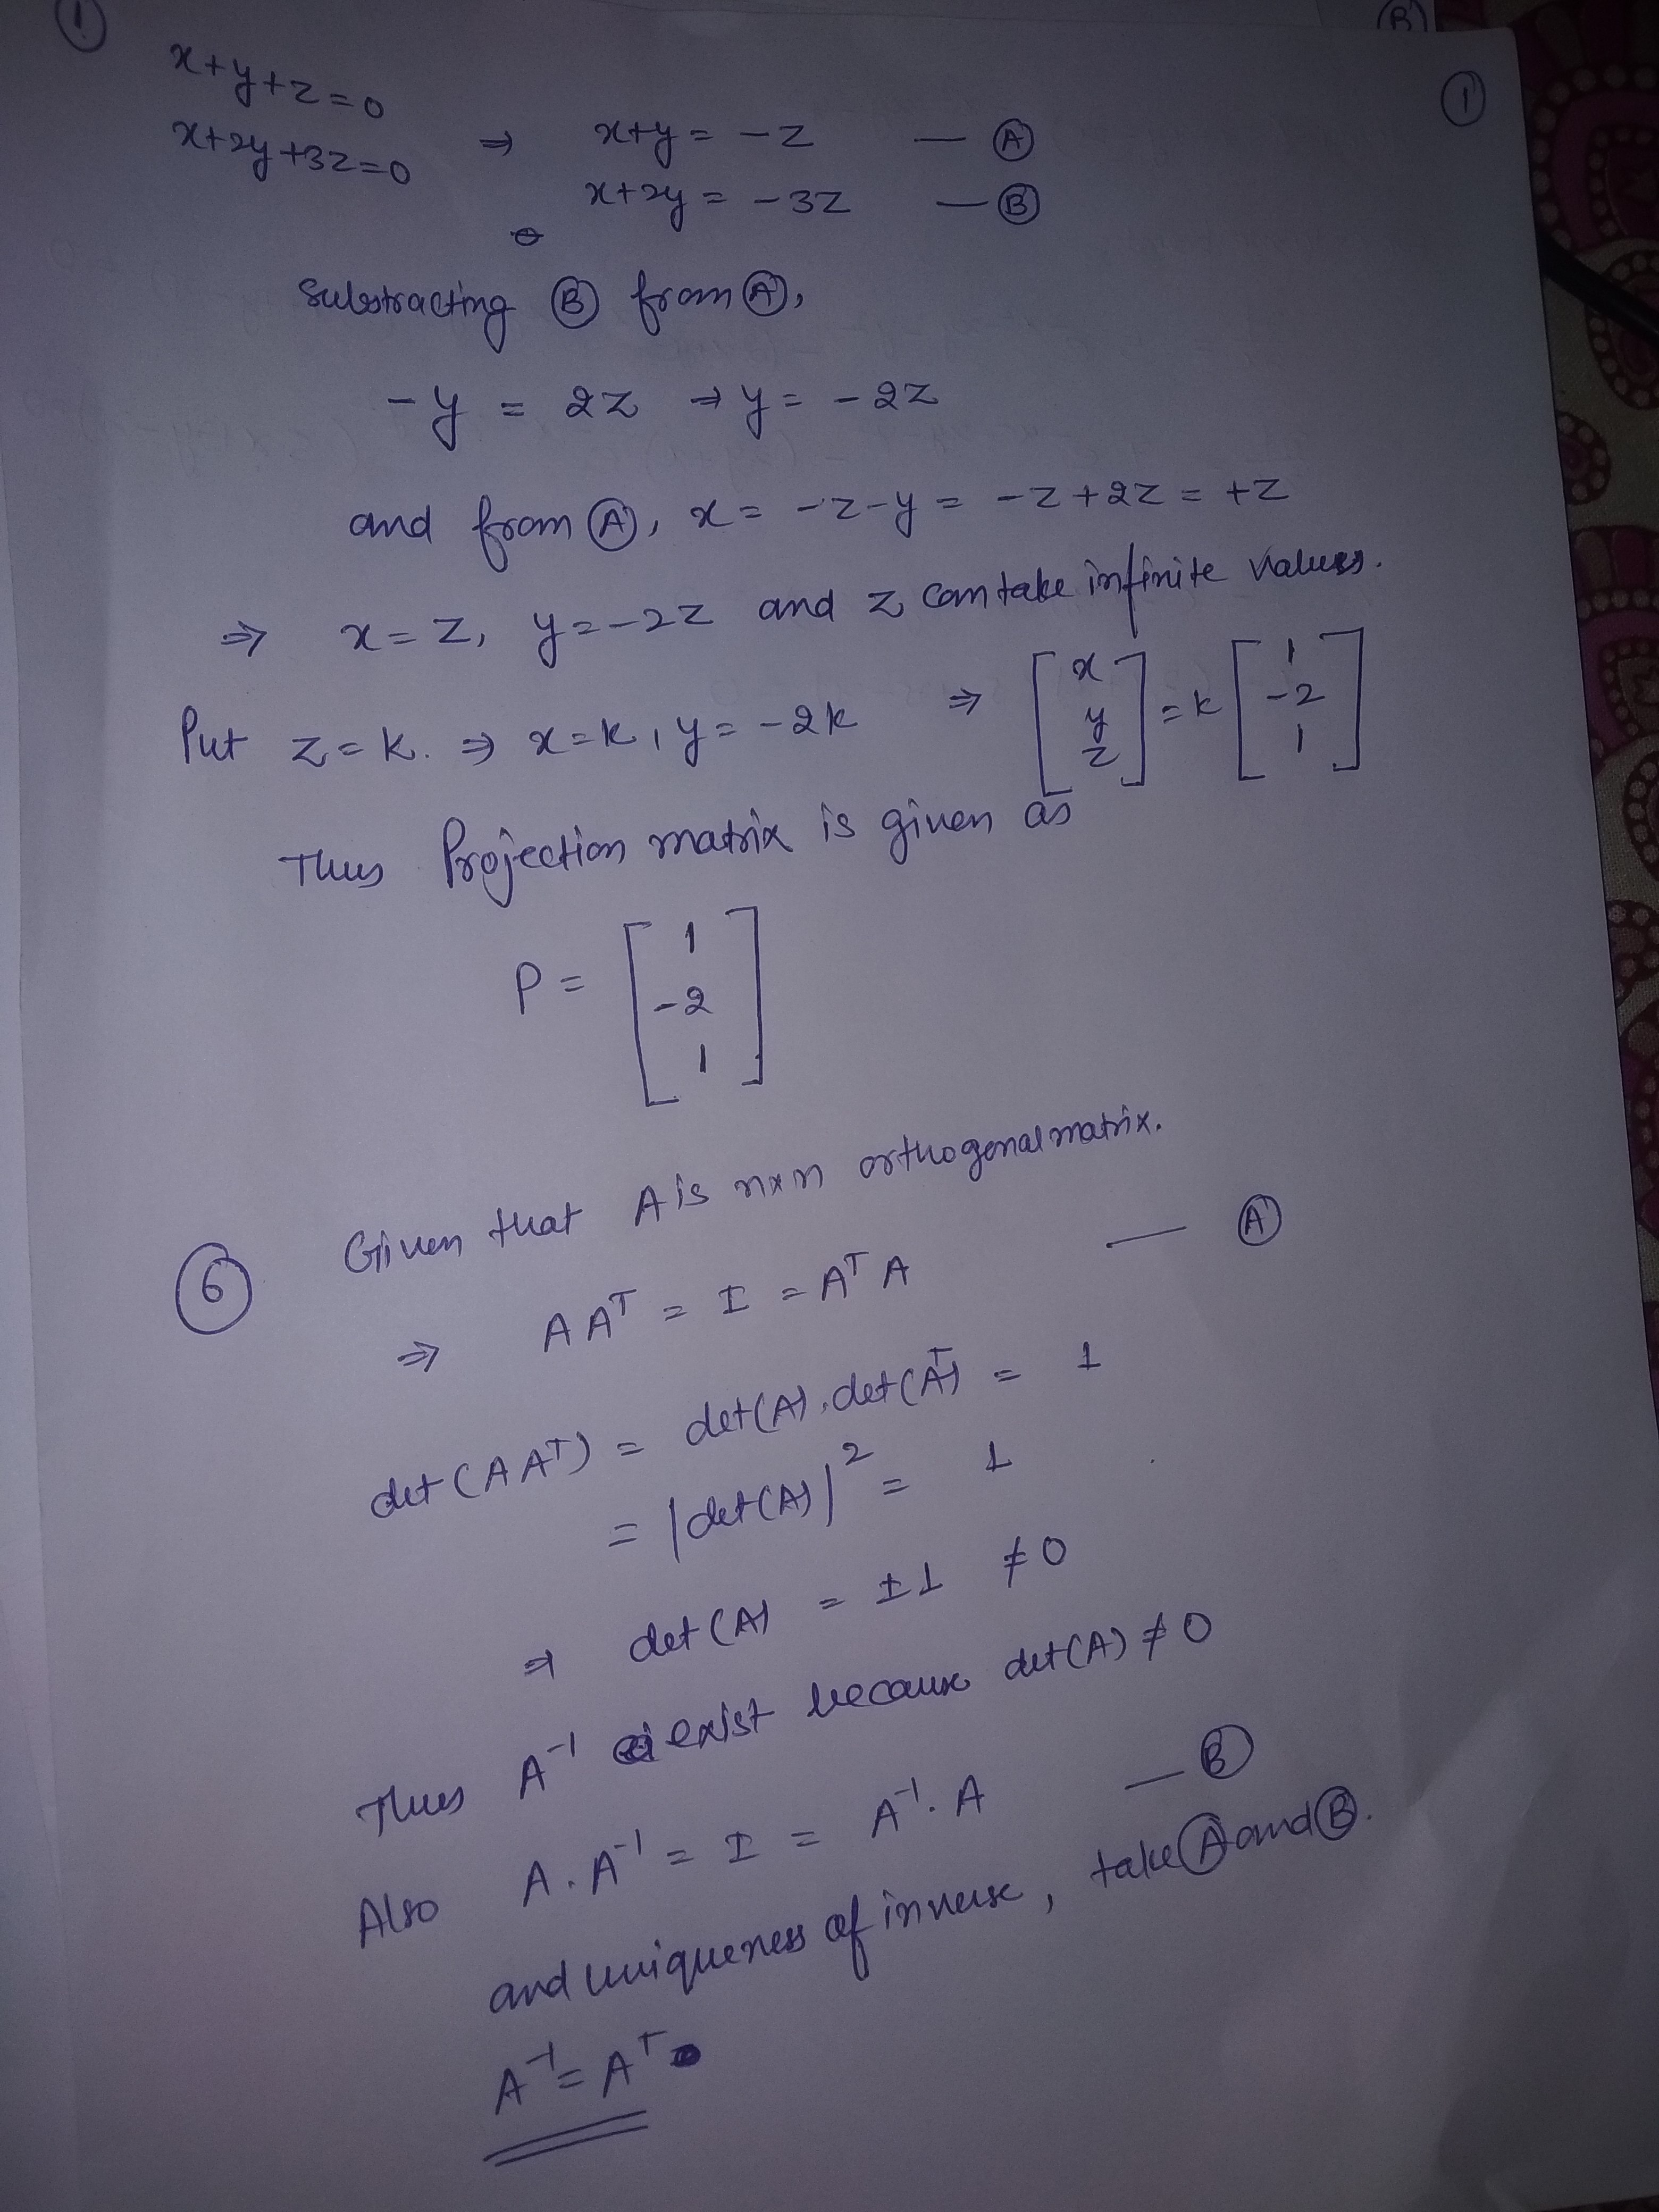 ①
Ⓑ
①
x+y+z=0
x+2y+3z=0 ⇒ x+y = -z — Ⓐ
x+2y = -3z — Ⓑ
Substracting Ⓑ from Ⓐ,
-y = 2z ⇒ y = -2z
and from Ⓐ, x = -z-y = -z+2z = +z
⇒ x = z, y = -2z and z can take infinite values.
Put z = k. ⇒ x = k, y = -2k ⇒ [x y z] = k [1 -2 1]
Thus Projection matrix is given as
P = [1 -2 1]
⑥ Given that A is n×n orthogonal matrix.
⇒ AAᵀ = I = AᵀA — Ⓐ
det(AAᵀ) = det(A).det(Aᵀ) = 1
= |det(A)|² = 1
⇒ det(A) = ±1 ≠ 0
Thus A⁻¹ exist because det(A) ≠ 0
Also A.A⁻¹ = I = A⁻¹.A — Ⓑ
and uniqueness of inverse, take Ⓐ and Ⓑ.
A⁻¹ = Aᵀ